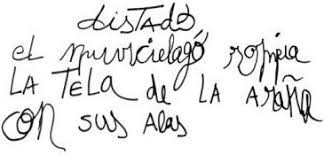 dISTADO
el murcielagó rompia
LA TELA de LA ARAñA
CON SUS ALAS